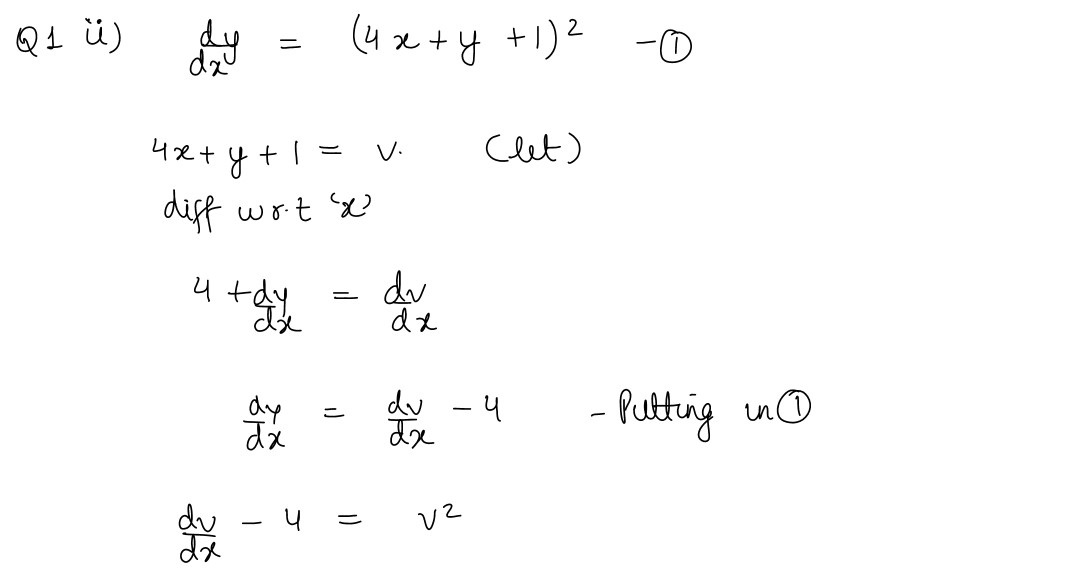 Q1 ii) dy/dx = (4x + y + 1)² - ①
4x + y + 1 = v. (let)
diff w.r.t 'x'
4 + dy/dx = dv/dx
dy/dx = dv/dx - 4 - Putting in ①
dv/dx - 4 = v²